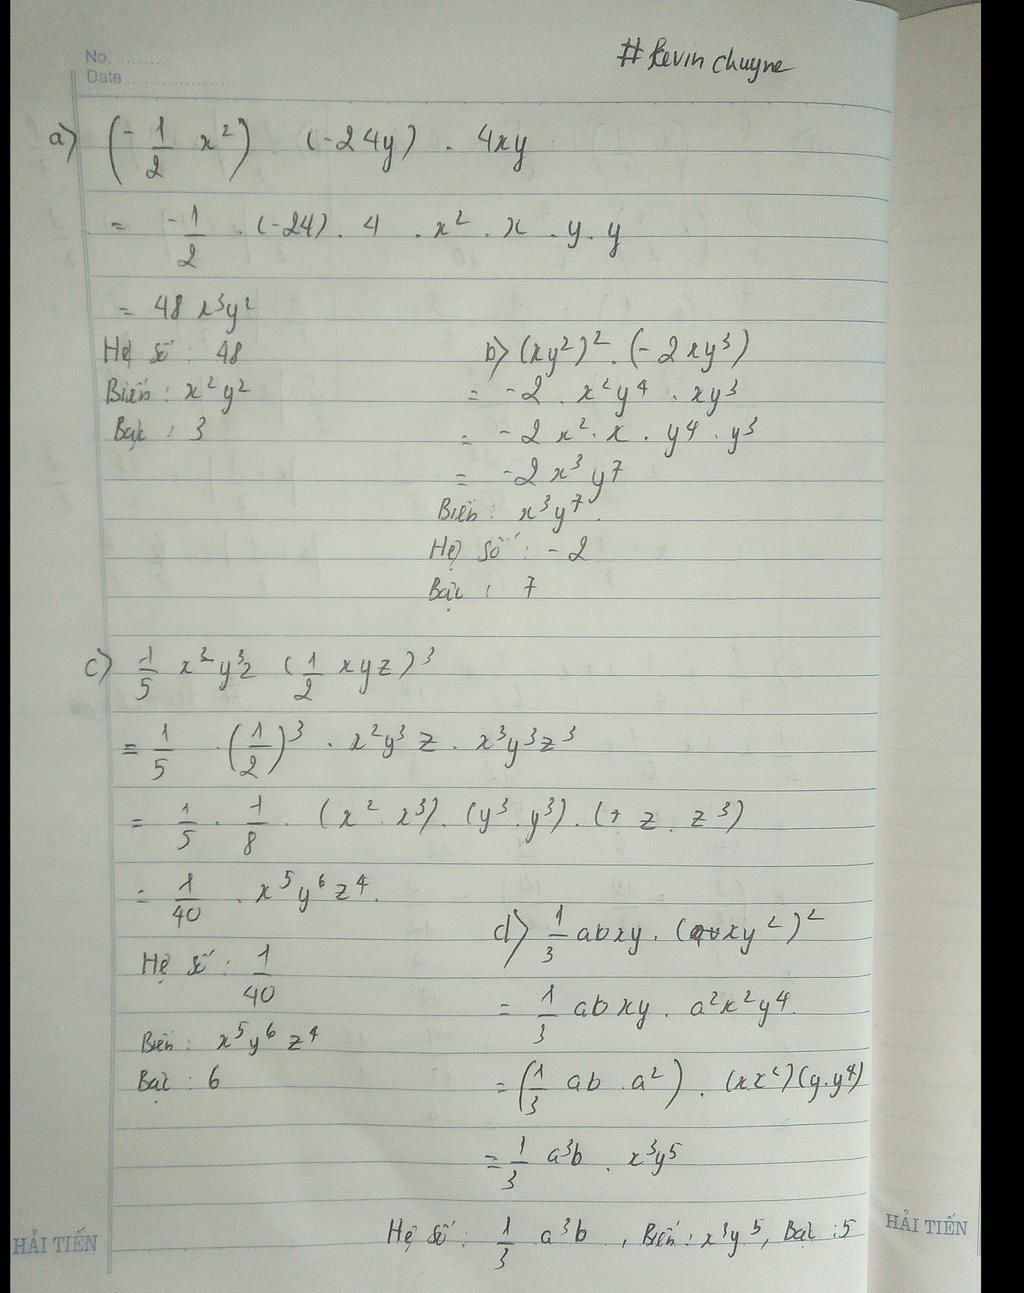 No. ........
Date ..................
# Kevin chuyne
a) (-1/2 x²) (-24y) . 4xy
= -1/2 . (-24) . 4 . x² . x . y . y
= 48 x³y²
Hệ số : 48
Biến : x²y²
Bậc : 3
b) (xy²)² . (-2xy³)
= -2 . x²y⁴ . xy³
= -2 x² . x . y⁴ . y³
= -2 x³ y⁷
Biến : x³y⁷.
Hệ số : -2
Bậc : 7
c) 1/5 x²y³z (1/2 xyz)³
= 1/5 . (1/2)³ . x²y³ z . x³y³z³
= 1/5 . 1/8 . (x² . x³) . (y³ . y³) . ( z . z³)
= 1/40 . x⁵y⁶z⁴.
Hệ số : 1/40
Biến : x⁵y⁶ z⁴
Bậc : 6
d) 1/3 abxy . (axy²)²
= 1/3 abxy . a²x²y⁴.
= (1/3 ab . a²) . (xx²)(y.y⁴)
= 1/3 a³b . x³y⁵
Hệ số : 1/3 a³b , Biến : x³y⁵, Bậc : 5
HẢI TIẾN
HẢI TIẾN